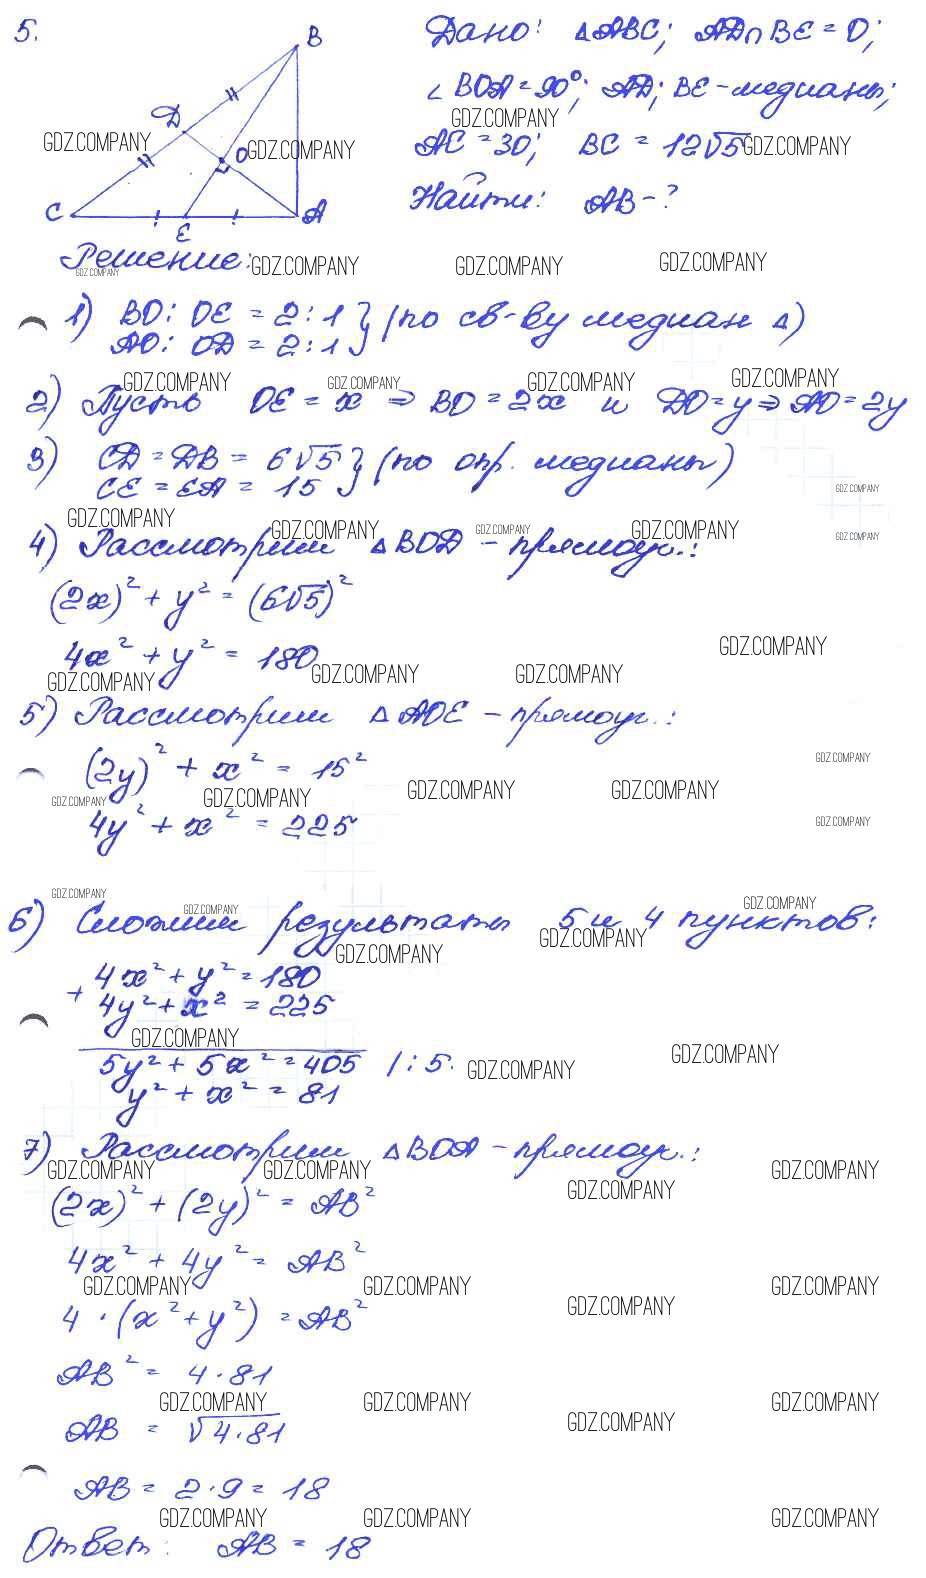 5.
B
D
O
C
E
A
Дано: △ABC; AD∩BE=O;
∠BOA=90°; AD; BE-медианы;
AC=30; BC=12√5
Найти: AB-?
Решение:
1) BO: OE = 2:1 } (по св-ву медиан △)
AO: OD = 2:1
2) Пусть OE = x ⇒ BO = 2x и DO=y ⇒ AO=2y
3) CD=DB = 6√5 } (по опр. медианы)
CE = EA = 15
4) Рассмотрим △BOD - прямоуг.:
(2x)² + y² = (6√5)²
4x² + y² = 180
5) Рассмотрим △AOE - прямоуг.:
(2y)² + x² = 15²
4y² + x² = 225
6) Сложим результаты 5 и 4 пунктов:
+ 4x² + y² = 180
4y² + x² = 225
5y² + 5x² = 405 /:5.
y² + x² = 81
7) Рассмотрим △BOA - прямоуг.:
(2x)² + (2y)² = AB²
4x² + 4y² = AB²
4 · (x² + y²) = AB²
AB² = 4·81
AB = √4·81
AB = 2·9 = 18
Ответ: AB = 18
GDZ.COMPANY